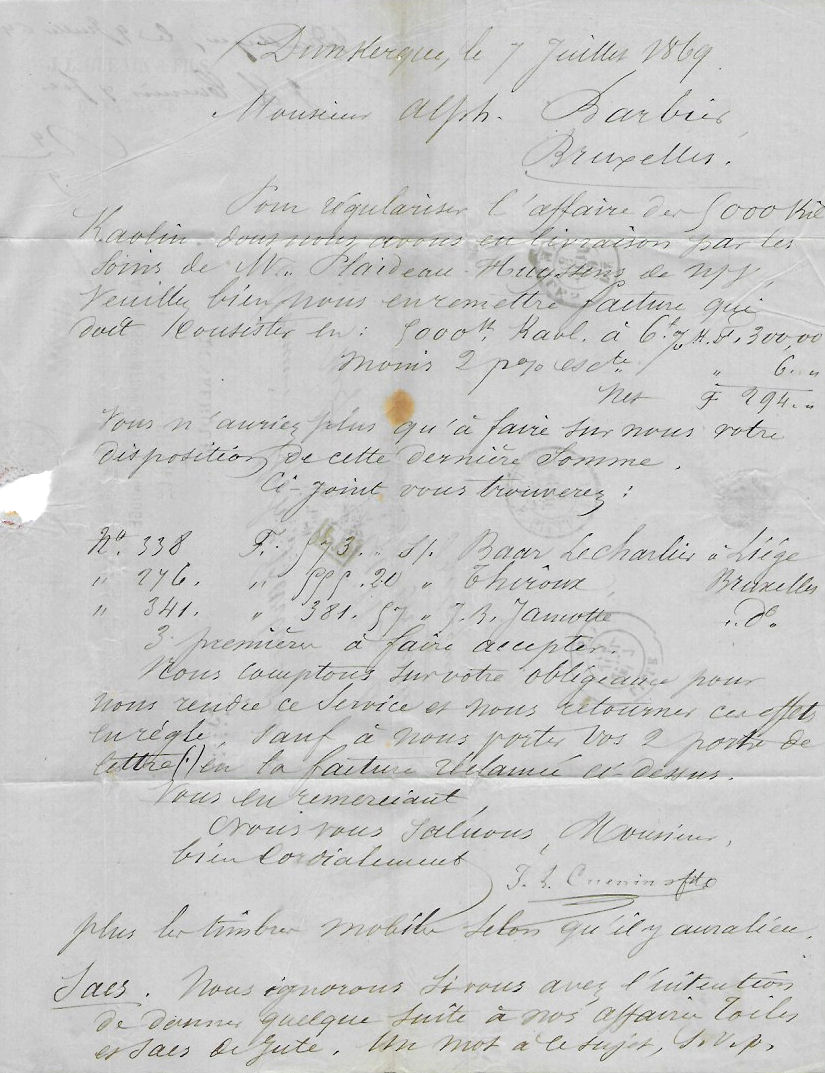 Dunkerque, le 7 Juillet 1869
Monsieur Alph. Barbier,
Bruxelles.
Pour régulariser l'affaire des 5000 Kil
Kaolin dont nous avons eu livraison par les
soins de Mr. Plaideau-Huyssens de
Veuillez bien nous en remettre facture qui
doit consister en: 5000 k. Kaol. à 6 f % K. F. 300,00
moins 2 p % escte " 6. "
Net F 294. "
Vous n'auriez plus qu'à faire sur nous votre
disposition de cette dernière somme.
Ci-joint vous trouverez:
No. 338 F. 573. " s/. Baar Lecharlier à Liége
" 276. " 555. 20 " Thiroux, Bruxelles
" 341. " 381. 57 " J. B. Jamotte " do
3 première à faire accepter.
Nous comptons sur votre obligeance pour
nous rendre ce service et nous retourner ces effets
en régle sauf à nous porter vos 2 ports de
lettre (.) en la facture réclamée ci-dessus.
Vous en remerciant,
Nous vous saluons, Monsieur,
bien cordialement
plus les timbres mobiles selon qu'il y aura lieu.
Sacs. Nous ignorons si vous avez l'intention
de donner quelque suite à nos affaires Toiles
et Sacs de Jute. Un mot à ce sujet, S.V.p.